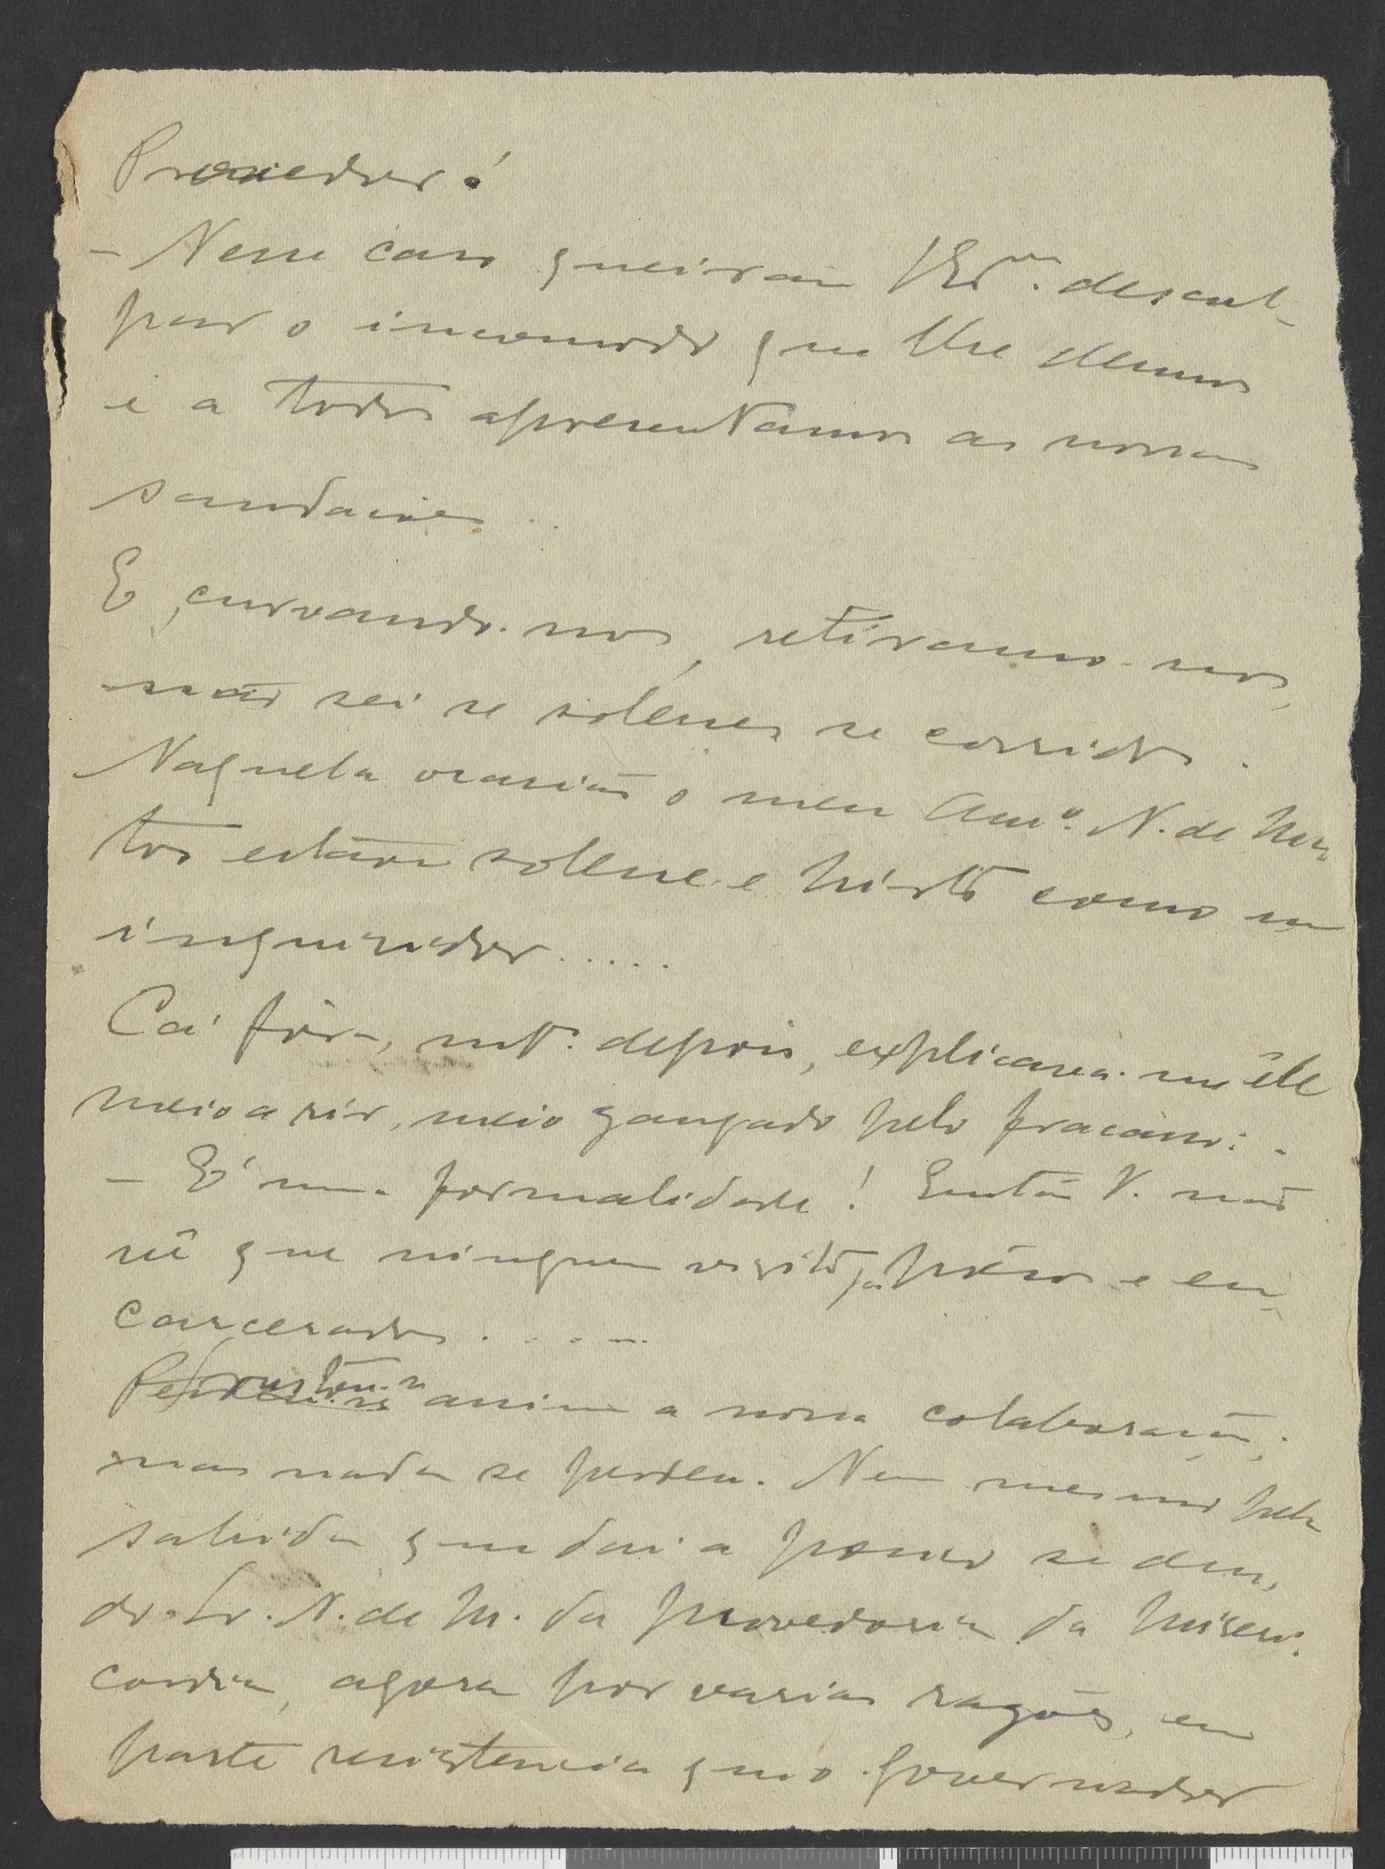 Provedor!
- Nesse caso queiram V. Ex.as descul-
par o incomodo que lhe demos
e a todos apresentamos as nossas
saudações...
E, curvando-nos, retiramo-nos,
não sei se solenes se corridos.
Naquela ocasião o meu Am.º N. de Ma
tos estava solene e hirto como um
inquisidor.....
Cá fóra, mt.º depois, explicava-me êle
meio a rir, meio zangado pelo fracasso: -
- É uma formalidade! Então V. não
vê que ninguem visitou presos e en-
carcerados.....
assim a nossa colaboração;
mas nada se perdeu. Nem mesmo pela
sahida que dai a pouco se deu,
do Sr. N. de M. da provedoria da Miseri-
cordia, agora por varias razões, em
parte resistencia que o governador